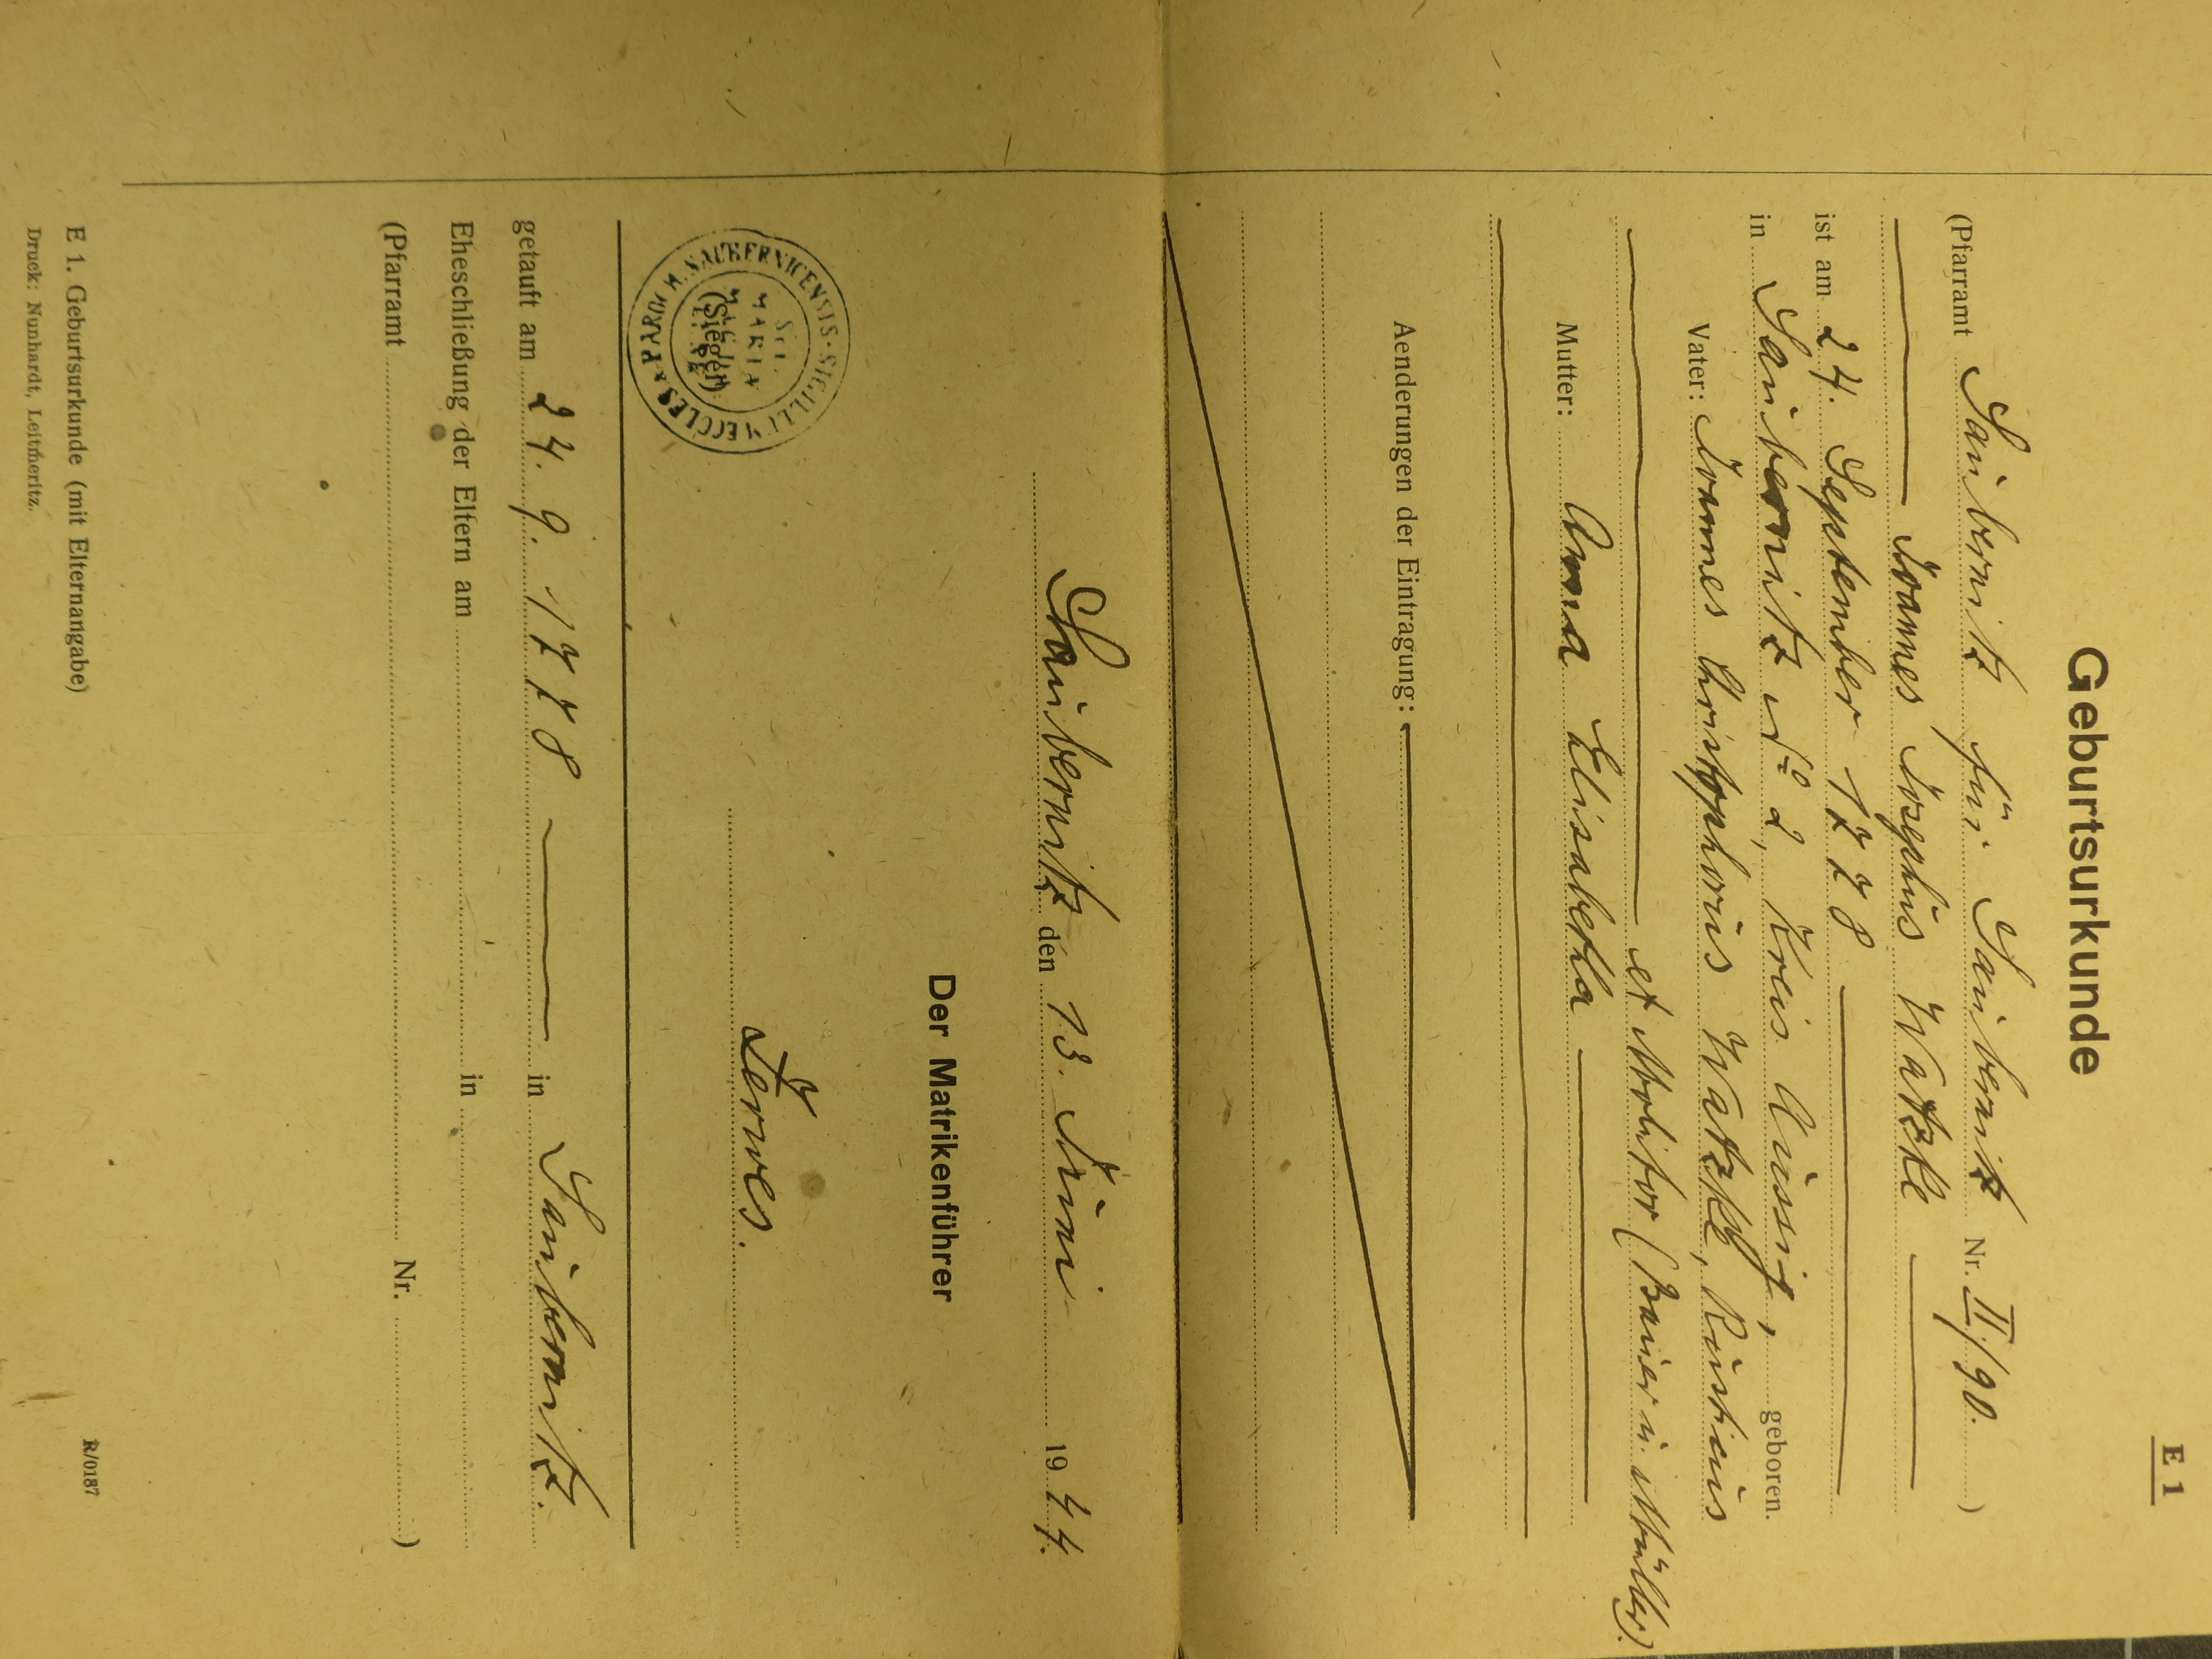 E 1
Geburtsurkunde
(Pfarramt Saubernitz für Saubernitz Nr. II/90. )
Joannes Josephus Watzke
ist am 24. September 1778
in Saubernitz No 2, Kreis Aussig, geboren.
Vater: Joannes Christophorus Watzke, Rusticus
et Molitor (Bauer u. Müller).
Mutter: Anna Elisabetha
Aenderungen der Eintragung:
Saubernitz den 13. Juni 1944.
Der Matrikenführer
Zerwes.
SIGILLUM ECCLES
MARIA
(Siegel)
getauft am 24. 9. 1778 in Saubernitz.
Eheschließung der Eltern am in
(Pfarramt Nr. )
E 1. Geburtsurkunde (mit Elternangabe)
R/0187
Druck: Nunhardt, Leitmeritz.